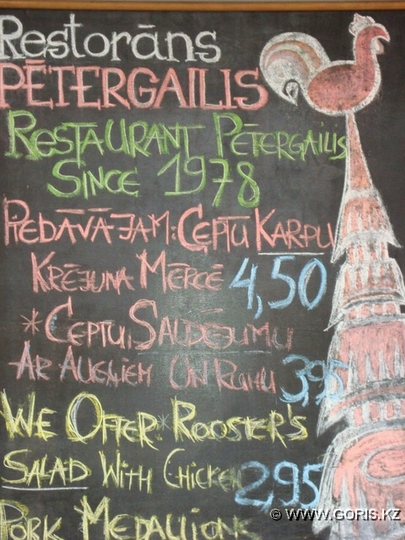 Restorāns
PĒTERGAILIS
RESTAURANT PĒTERGAILIS
SINCE 1978
PIEDĀVĀJAM: CEPTU KARPU
KRĒJUMA MĒRCĒ 4,50
* CEPTU SALDĒJUMU
AR AUGĻIEM UN RUMU 3,95
WE OFFER: ROOSTER'S
SALAD WITH CHICKEN 2,95
PORK MEDALLIONS
© WWW.GORIS.KZ